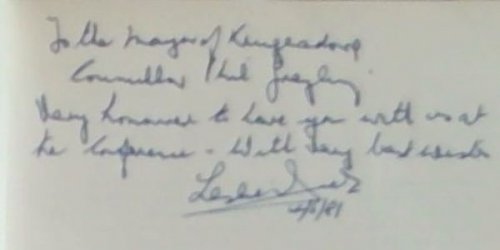 To the Mayor of Krugersdorp
Councillor Phil
Very honoured to have you with us at
the Conference - With very best wishes